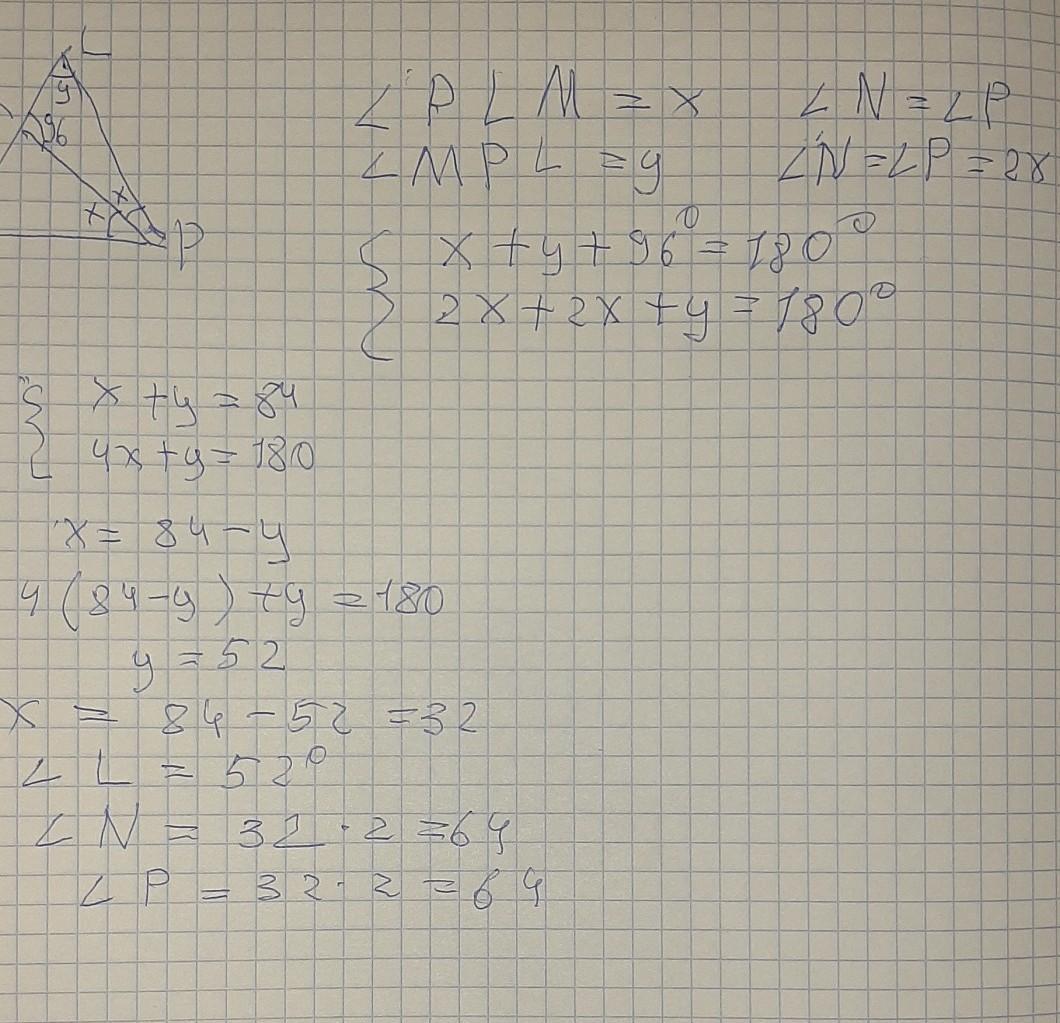 L
y
96
x
x
P
∠PLM = x ∠N = ∠P
∠MPL = y ∠N = ∠P = 2x
{ x + y + 96° = 180°
2x + 2x + y = 180°
{ x + y = 84
4x + y = 180
x = 84 - y
4(84 - y) + y = 180
y = 52
x = 84 - 52 = 32
∠L = 52°
∠N = 32 · 2 = 64
∠P = 32 · 2 = 64